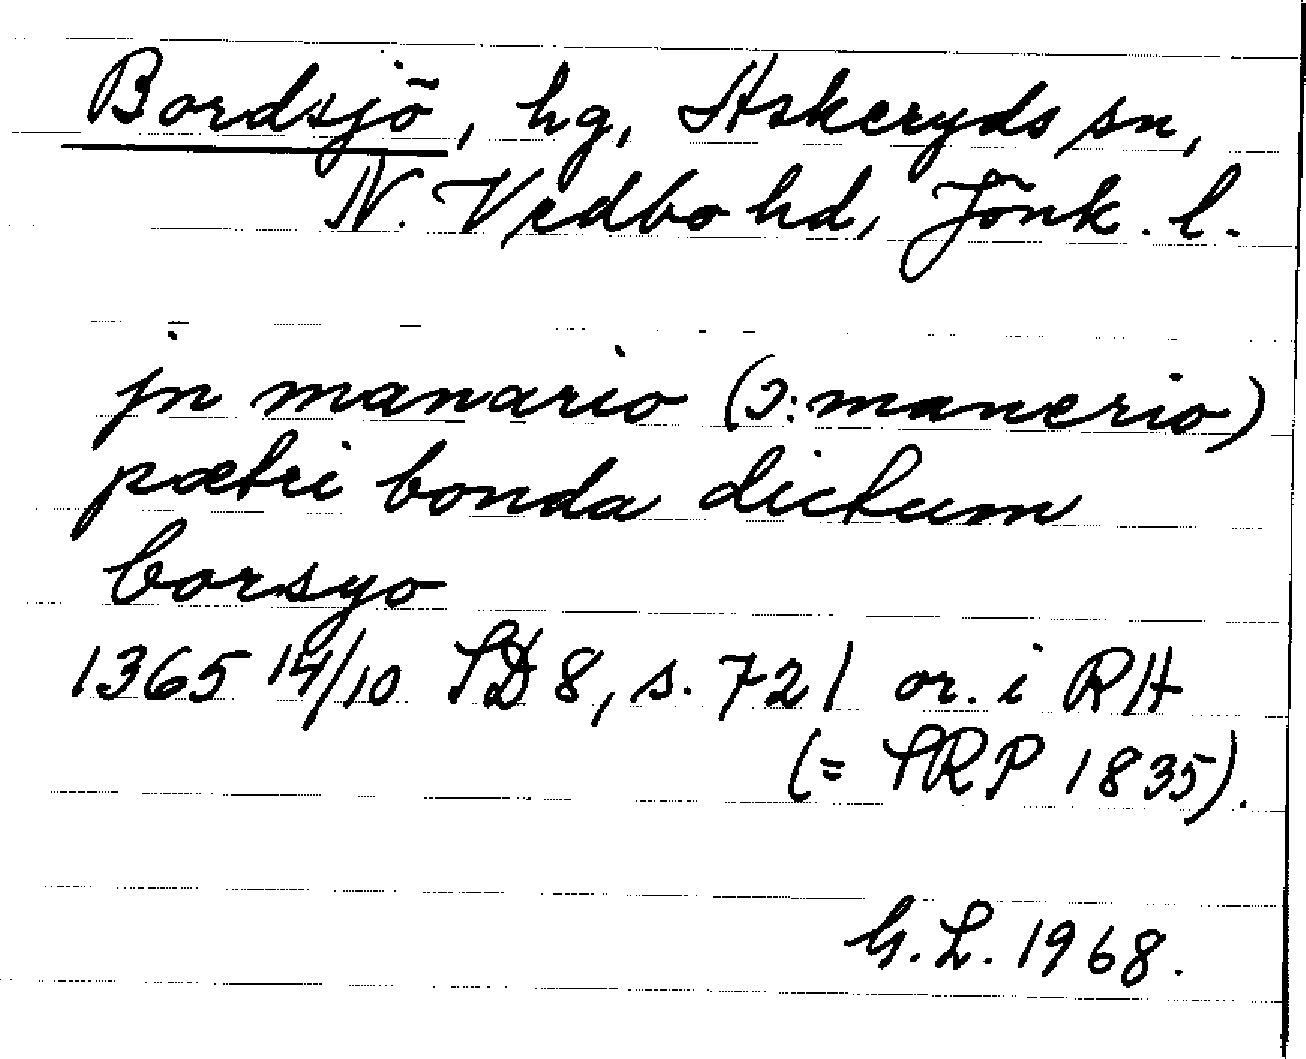 Bordsjö, hg, Askeryds sn,
N. Vedbo hd, Jönk. l.
jn manario (ɔ: manerio)
pætri bonda dictum
borsyo
1365 14/10 SD 8, s. 721 or. i RA
(= SRP 1835).
G.L. 1968.